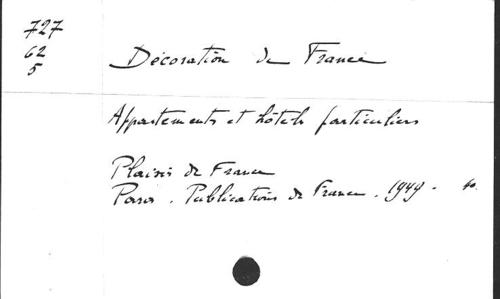 727
62
5
Décoration de France
Appartements et hôtels particuliers
Plaisir de France
Paris. Publications de France. 1949. 40.